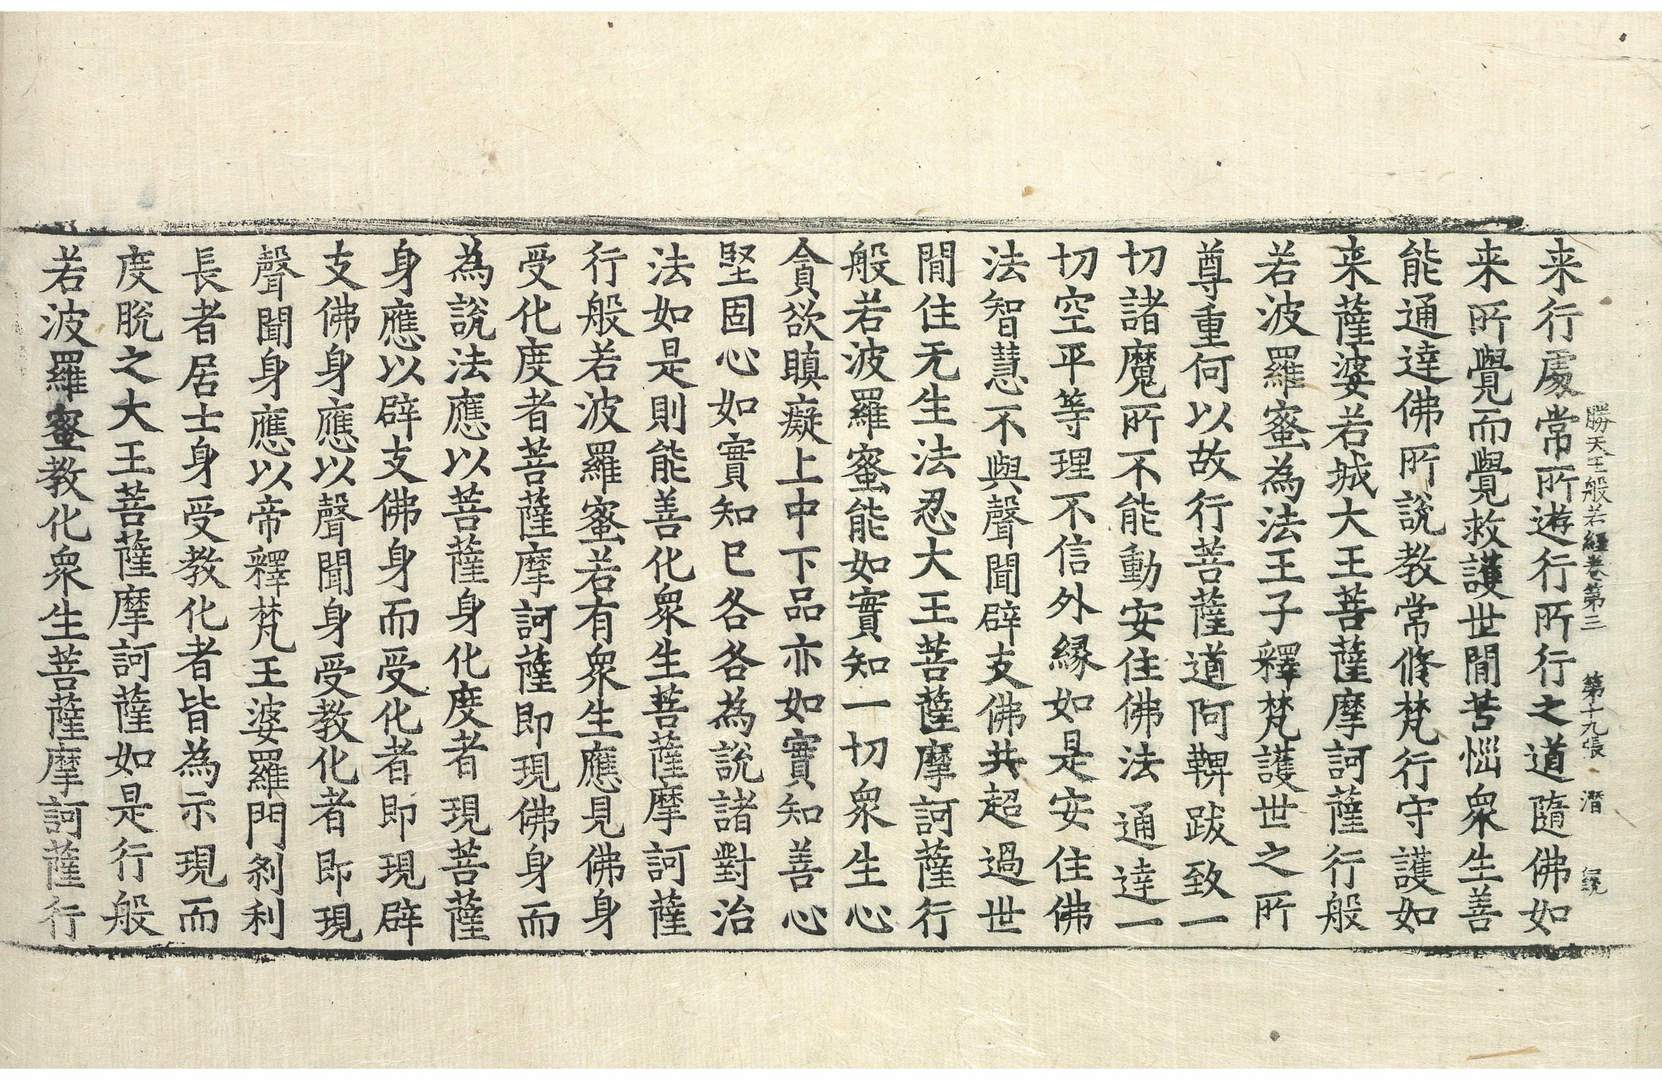 勝天王般若經卷第三 第十九張 潛
来行處常所遊行所行之道隨佛如
来所覺而覺救護世閒苦惱衆生善
能通達佛所說教常脩梵行守護如
来薩婆若城大王菩薩摩訶薩行般
若波羅蜜為法王子釋梵護世之所
尊重何以故行菩薩道阿鞞跋致一
切諸魔所不能動安住佛法通達一
切空平等理不信外緣如是安住佛
法智慧不與聲聞辟支佛共超過世
閒住无生法忍大王菩薩摩訶薩行
般若波羅蜜能如實知一切衆生心
貪欲瞋癡上中下品亦如實知善心
堅固心如實知已各各為說諸對治
法如是則能善化衆生菩薩摩訶薩
行般若波羅蜜若有衆生應見佛身
受化度者菩薩摩訶薩即現佛身而
為說法應以菩薩身化度者現菩薩
身應以辟支佛身而受化者即現辟
支佛身應以聲聞身受教化者即現
聲聞身應以帝釋梵王婆羅門剎利
長者居士身受教化者皆為示現而
度脫之大王菩薩摩訶薩如是行般
若波羅蜜教化衆生菩薩摩訶薩行